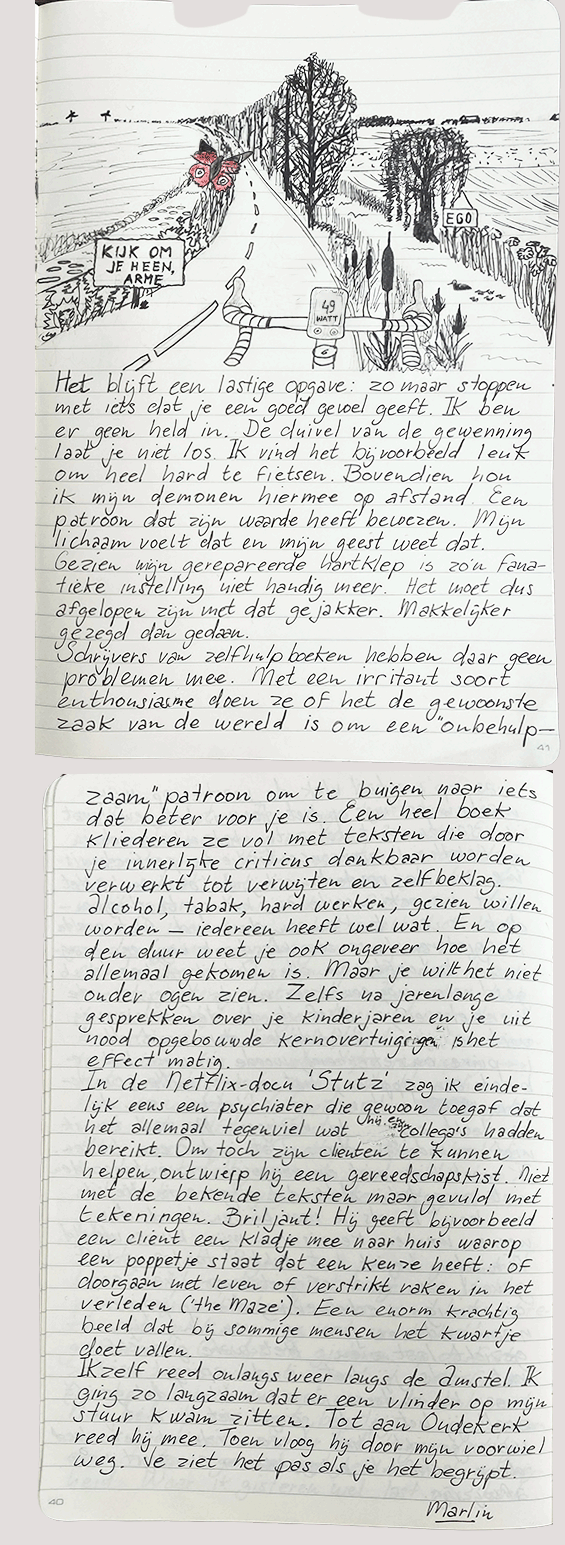 EGO
KIJK OM
JE HEEN,
ARME
49
WATT
Het blijft een lastige opgave: zo maar stoppen
met iets dat je een goed gevoel geeft. Ik ben
er geen held in. De duivel van de gewenning
laat je niet los. Ik vind het bijvoorbeeld leuk
om heel hard te fietsen. Bovendien hou
ik mijn demonen hiermee op afstand. Een
patroon dat zijn waarde heeft bewezen. Mijn
lichaam voelt dat en mijn geest weet dat.
Gezien mijn gerepareerde hartklep is zo'n fana-
tieke instelling niet handig meer. Het moet dus
afgelopen zijn met dat gejakker. Makkelijker
gezegd dan gedaan.
Schrijvers van zelfhulpboeken hebben daar geen
problemen mee. Met een irritant soort
enthousiasme doen ze of het de gewoonste
zaak van de wereld is om een "onbehulp-
41
zaam" patroon om te buigen naar iets
dat beter voor je is. Een heel boek
kliederen ze vol met teksten die door
je innerlijke criticus dankbaar worden
verwerkt tot verwijten en zelfbeklag.
Alcohol, tabak, hard werken, gezien willen
worden – iedereen heeft wel wat. En op
den duur weet je ook ongeveer hoe het
allemaal gekomen is. Maar je wilt het niet
onder ogen zien. Zelfs na jarenlange
gesprekken over je kinderjaren en je uit
nood opgebouwde kernovertuigingen is het
effect matig.
In de Netflix-docu 'Stutz' zag ik einde-
lijk eens een psychiater die gewoon toegaf dat
het allemaal tegenviel wat hij en collega's hadden
bereikt. Om toch zijn cliënten te kunnen
helpen, ontwierp hij een gereedschapskist. Niet
met de bekende teksten maar gevuld met
tekeningen. Briljant! Hij geeft bijvoorbeeld
een cliënt een kladje mee naar huis waarop
een poppetje staat dat een keuze heeft: of
doorgaan met leven of verstrikt raken in het
verleden ('the Maze'). Een enorm krachtig
beeld dat bij sommige mensen het kwartje
doet vallen.
Ikzelf reed onlangs weer langs de Amstel. Ik
ging zo langzaam dat er een vlinder op mijn
stuur kwam zitten. Tot aan Oudekerk
reed hij mee. Toen vloog hij door mijn voorwiel
weg. Je ziet het pas als je het begrijpt.
40
Marlin